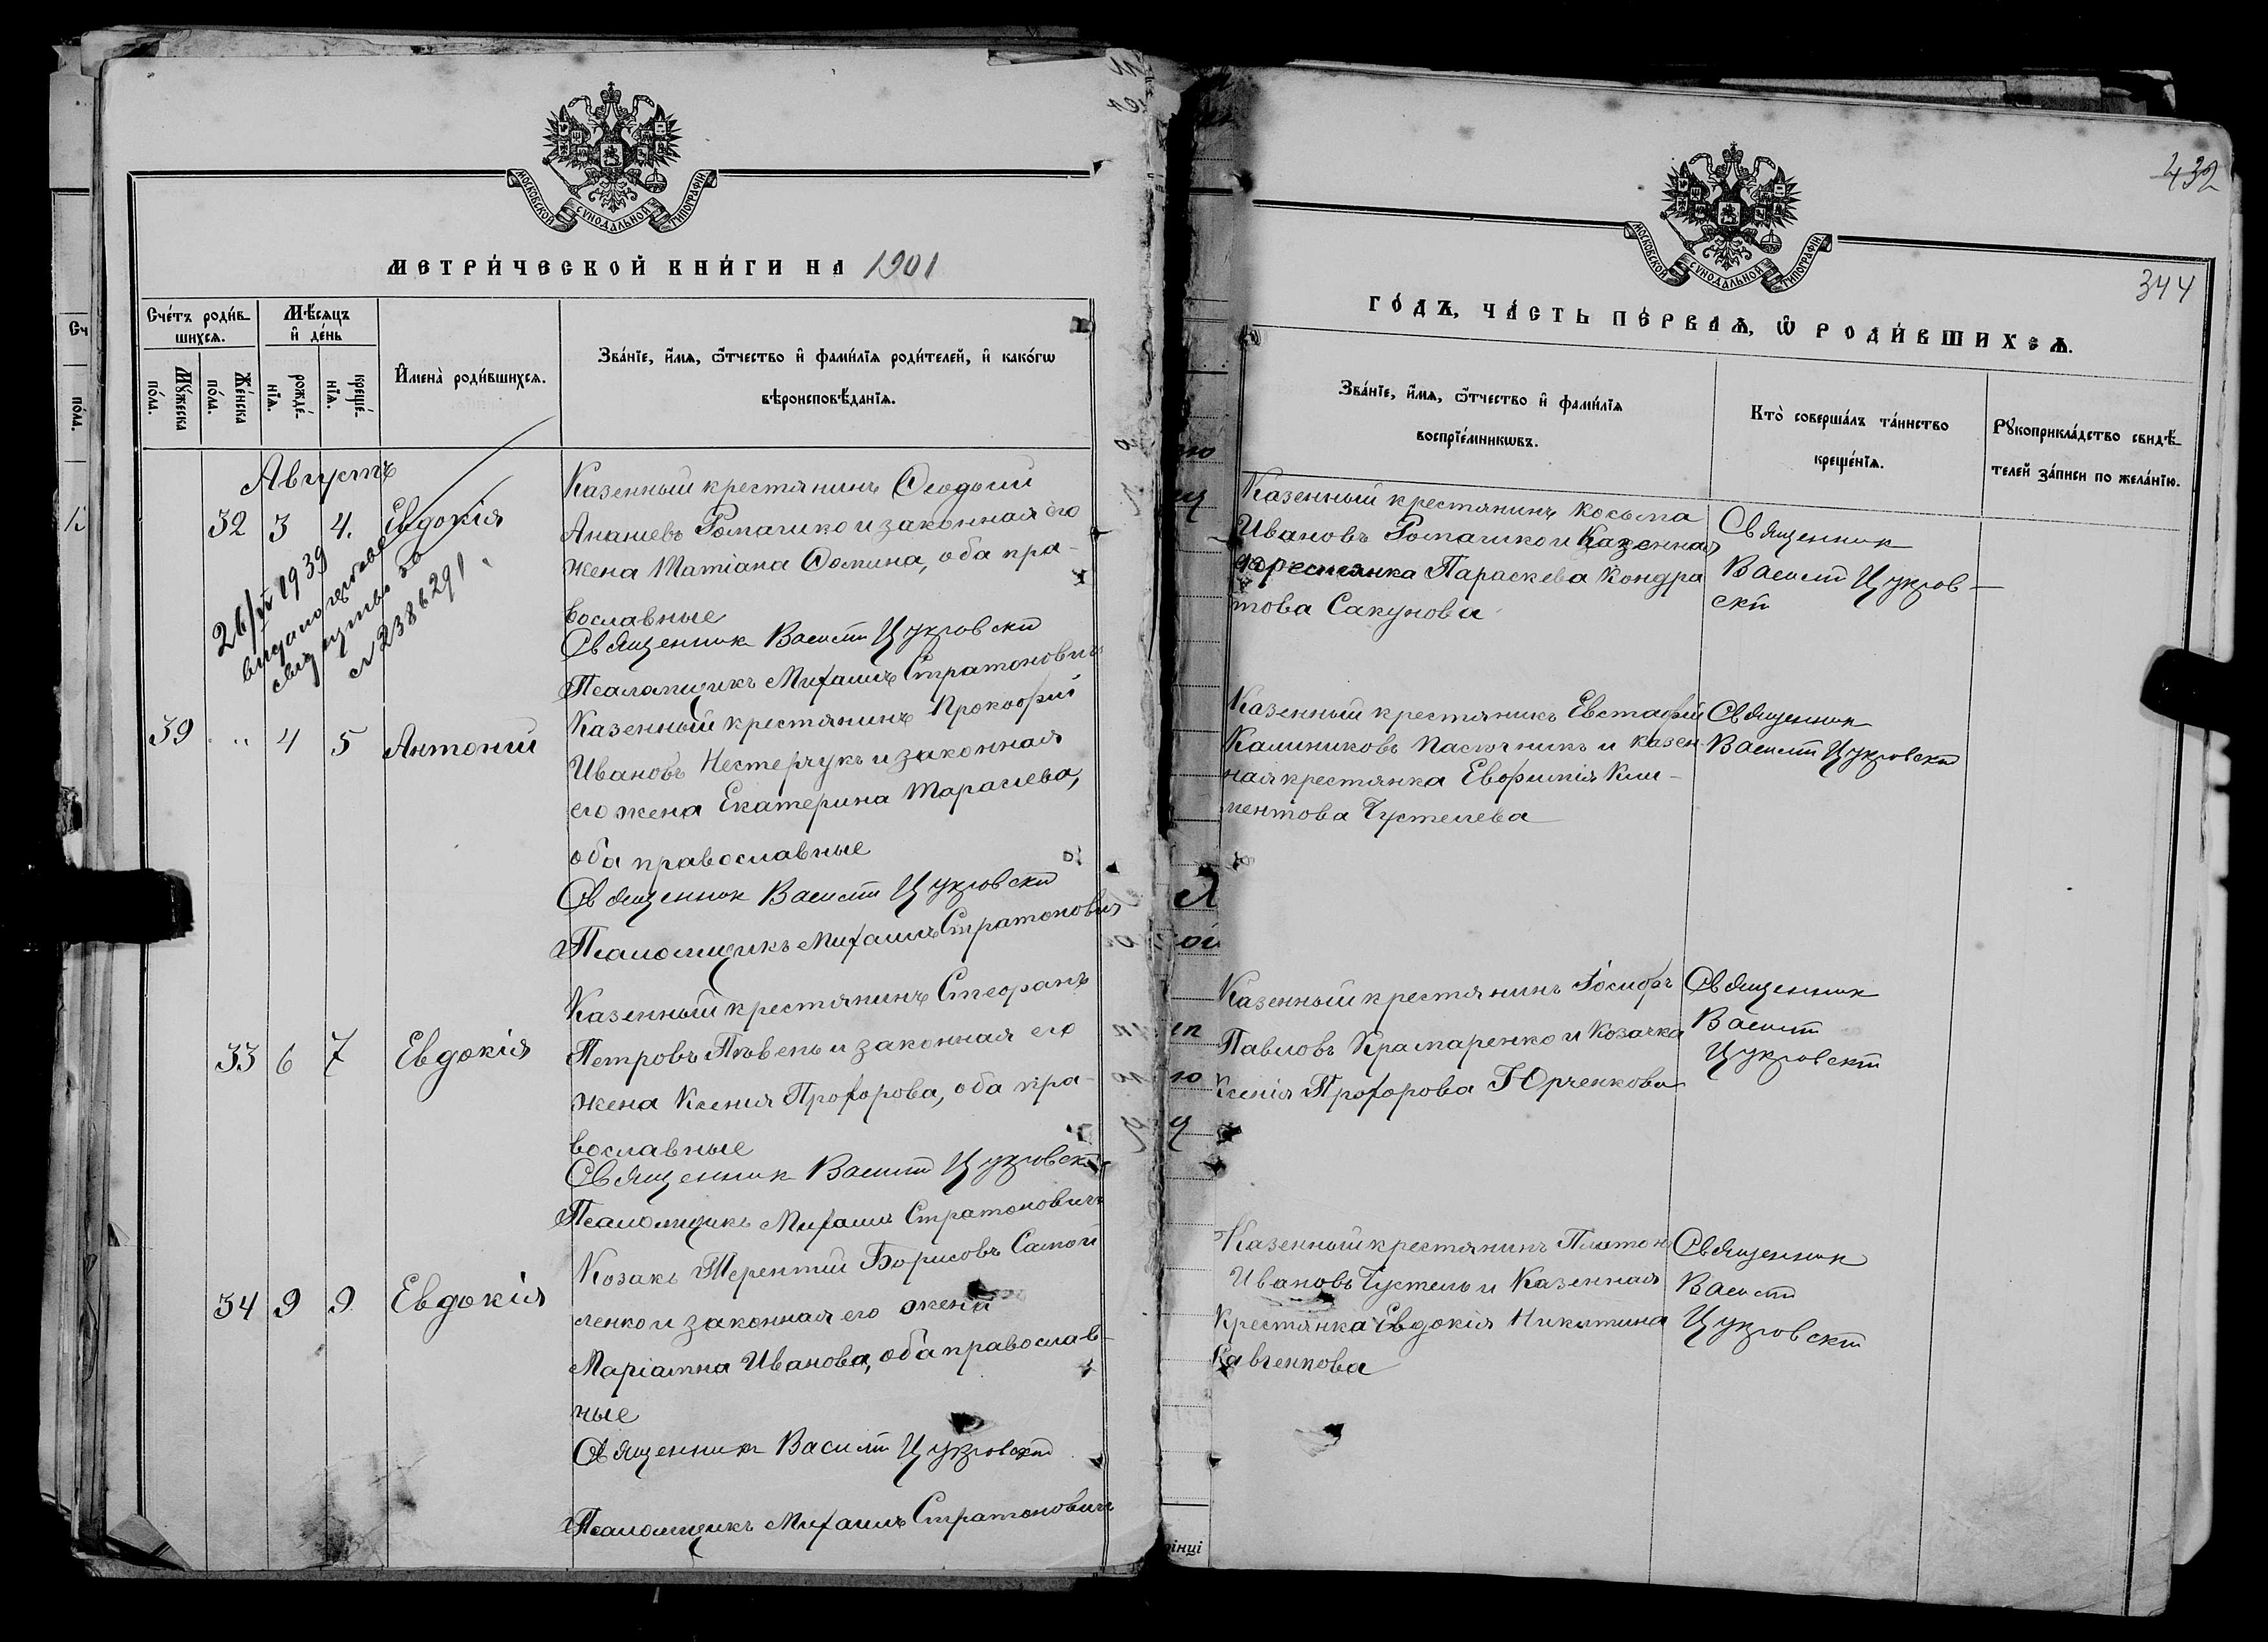 МОСКОВСКОЙ СѴНОДАЛЬНОЙ ТИПОГРАФІИ
МЕТРИ́ЧЕСКОЙ КНИ́ГИ НА 1901
Сче́тъ роди́вшихсѧ.
Мѣ́сѧцъ и҆ де́нь
И҆мена̀ роди́вшихсѧ.
Зва́нїе, и҆́мѧ, ѻ҆́тчество и҆ фами́лїѧ роди́телей, и҆ како́гѡ
вѣроисповѣ́данїѧ.
Мꙋ́жеска по́ла.
Же́нска по́ла.
рожде́нїѧ.
креще́нїѧ.
Августъ
32 3 4. Евдокія
Казенный крестянинъ Ѳеодосій
Ананіевъ Ромашко и законная его
жена Татіана Ѳомина, оба пра-
вославные
Священник Василій Цукровскій
Псаломщикъ Михаилъ Стратоновичъ
26/ 1939
видано
свідуцтво за
№ 2386291.
39 " 4 5 Антоній
Казенный крестянинъ Прокофій
Ивановъ Нестерчукъ и законная
его жена Екатерина Тарасіева,
оба православные
Священник Василій Цукровскій
Псаломщикъ Михаилъ Стратоновичъ
33 6 7 Евдокія
Казенный крестянинъ Стефанъ
Петровъ Пѣвень и законная его
жена Ксенія Прохорова, оба пра-
вославные
Священник Василій Цукровскій
Псаломщикъ Михаилъ Стратоновичъ
34 9 9. Евдокія
Козакъ Терентій Борисовъ Самой
ленко и законная его жена
Маріамна Иванова, оба православ-
ные
Священник Василій Цукровскій
Псаломщикъ Михаилъ Стратоновичъ
432
344
МОСКОВСКОЙ СѴНОДАЛЬНОЙ ТИПОГРАФІИ
ГО́ДЪ, ЧА́СТЬ ПЕ́РВАѦ, Ѡ҆ РОДИ́ВШИХСѦ.
Зва́нїе, и҆́мѧ, ѻ҆́тчество и҆ фами́лїѧ
воспрїе́мникѡвъ.
Кто̀ соверша́лъ та́инство
креще́нїѧ.
Рꙋкоприкла́дство свидѣ́-
телей за́писи по жела́нїю.
Казенный крестянинъ Косьма
Ивановъ Ромашко и Казенная
крестянка Параскева Кондра
това Сакунова
Священник
Василій Цукров-
скій
Казенный крестянинъ Евстафій
Калиниковъ Пасѣчникъ и казен-
ная крестянка Евфимія Кли-
ментова Чустелева
Священник
Василій Цукровскій
Казенный крестянинъ Іосифъ
Павловъ Крамаренко и Козачка
Ксенія Прохорова Юрченкова
Священник
Василій
Цукровскій
Казенный крестянинъ Платонъ
Ивановъ Чустель и Казенная
Крестянка Евдокія Никитина
Кавченкова
Священник
Василій
Цукровскій